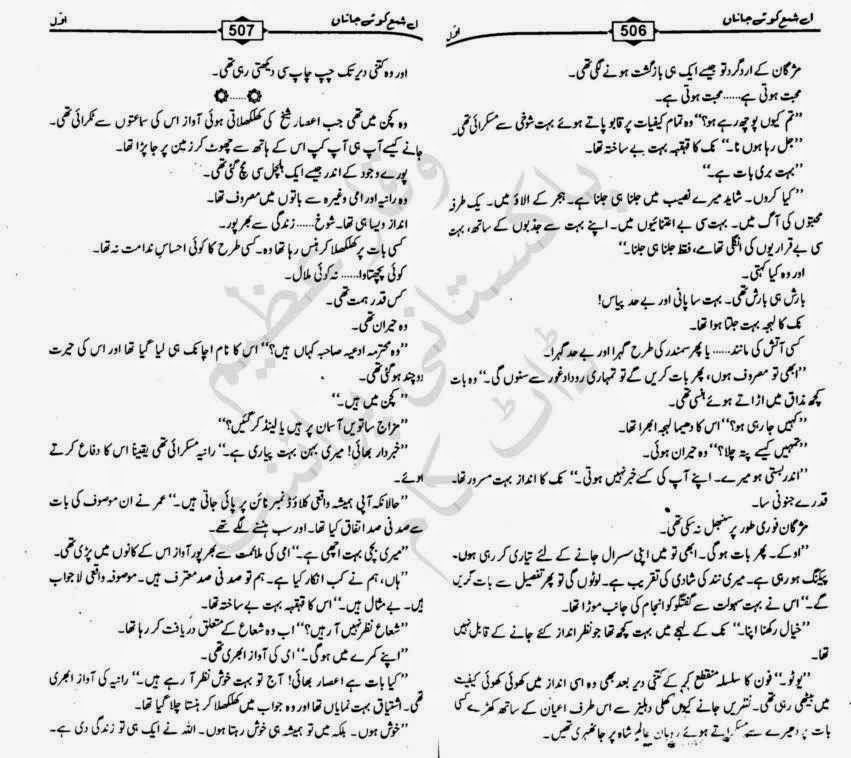 اے شمع کوئے جاناں
506
اوّل
مژگان کے اردگرد تو جیسے ایک ہی بازگشت ہونے لگی تھی۔
محبت ہوتی ہے......محبت ہوتی ہے۔
”تم کیوں پوچھ رہے ہو؟“ وہ تمام کیفیات پر قابو پاتے ہوئے بہت شوخی سے مسکرائی تھی۔
”جل رہا ہوں نا۔“ تک کا قہقہہ بہت بے ساختہ تھا۔
”بہت بری بات ہے۔“
”کیا کروں۔ شاید میرے نصیب میں جلنا ہی جلنا ہے۔ ہجر کے الاؤ میں۔ یک طرفہ
محبتوں کی آگ میں۔ بہت سی بے اعتنائیوں میں۔ اپنے بہت سے جذبوں کے ساتھ، بہت
سی بے قراریوں کی انگلی تھامے، فقط جلنا ہی جلنا۔“
اور وہ کیا کہتی۔
بارش ہی بارش تھی۔ بہت سا پانی اور بے حد پیاس!
تک کا لہجہ بہت جلتا ہوا تھا۔
کسی آتش کی مانند...... یا پھر سمندر کی طرح گہرا اور بے حد گہرا۔
”ابھی تو مصروف ہوں، پھر بات کریں گے تو تمہاری روداد غور سے سنوں گی۔“ وہ بات
کچھ مذاق میں اڑاتے ہوئے ہنسی تھی۔
”کہیں جا رہی ہو؟“ اس کا دھیما لہجہ ابھرا تھا۔
”تمہیں کیسے پتہ چلا؟“ وہ حیران ہوئی۔
”اندر بستی ہو میرے۔ اپنے آپ کی کسے خبر نہیں ہوتی۔“ تک کا انداز بہت مسرور تھا۔
قدرے جنونی سا۔
مژگان فوری طور پر سنبھل نہ سکی تھی۔
”اوکے۔ پھر بات ہو گی۔ ابھی تو میں اپنی سسرال جانے کے لئے تیاری کر رہی ہوں۔
پیکنگ ہو رہی ہے۔ میری نند کی شادی کی تقریب ہے۔ لوٹوں گی تو پھر تفصیل سے بات کریں
گے۔“ اس نے بہت سہولت سے گفتگو کو انجام کی جانب موڑا تھا۔
”خیال رکھنا اپنا۔“ تک کے لہجے میں بہت کچھ تھا جو نظر انداز کئے جانے کے قابل نہیں
تھا۔
”یوٹو۔“ فون کا سلسلہ منقطع کر کے کتنی دیر بعد بھی وہ اسی انداز میں کھوئی کھوئی کیفیت
میں بیٹھی رہی تھی۔ نظریں جانے کیوں کھلی دہلیز سے اس طرف اعیان کے ساتھ کھڑے کسی
بات پر دھیرے سے مسکراتے ہوئے عالم شاہ پر جا ٹھہری تھیں۔
اے شمع کوئے جاناں
507
اوّل
اور وہ کتنی دیر تک چپ چاپ سی دیکھتی رہی تھی۔
۞......۞
وہ کچن میں تھی جب اعصار شیخ کی کھلکھلاتی ہوئی آواز اس کی سماعتوں سے ٹکرائی تھی۔
جانے کیسے آپ ہی آپ کپ اس کے ہاتھ سے چھوٹ کر زمین پر جا پڑا تھا۔
پورے وجود کے اندر جیسے ایک ہلچل سی مچ گئی تھی۔
وہ رانیہ اور امی وغیرہ سے باتوں میں مصروف تھا۔
انداز ویسا ہی تھا۔ شوخ...... زندگی سے بھرپور۔
کسی بات پر کھلکھلا کر ہنس رہا تھا وہ۔ کسی طرح کا کوئی احساسِ ندامت نہ تھا۔
کوئی پچھتاوا...... نہ کوئی ملال۔
کس قدر ہمت تھی۔
وہ حیران تھی۔
”وہ محترمہ ادعیہ صاحبہ کہاں ہیں؟“ اس کا نام اچانک ہی لیا گیا تھا اور اس کی حیرت
دو چند ہو گئی تھی۔
”کچن میں ہیں۔“
”مزاج ساتویں آسمان پر ہیں یا لینڈ کر گئیں؟“
”خبردار بھائی! میری بہن بہت پیاری ہے۔“ رانیہ مسکرائی تھی یقیناً اس کا دفاع کرتے
ہوئے۔
”حالانکہ آپی ہمیشہ واقعی کلاؤڈ نمبر نائن پر پائی جاتی ہیں۔“ عمر نے ان موصوف کی بات
سے صد فی صد اتفاق کیا تھا۔ اور سب ہنسنے لگے تھے۔
”میری بچی بہت اچھی ہے۔“ امی کی ملائمت سے بھرپور آواز اس کے کانوں میں پڑی تھی۔
”ہاں، ہم نے کب انکار کیا ہے۔ ہم تو صد فی صد معترف ہیں۔ موصوفہ واقعی لاجواب
ہیں۔ بے مثال ہیں۔“ اس کا قہقہہ بہت بے ساختہ تھا۔
”شعاع نظر نہیں آ رہیں؟“ اب وہ شعاع کے متعلق دریافت کر رہا تھا۔
”اپنے کمرے میں ہو گی۔“ امی کی آواز ابھری تھی۔
”کیا بات ہے اعصار بھائی! آج تو بہت خوش نظر آ رہے ہیں۔“ رانیہ کی آواز ابھری
تھی۔ اشتیاق بہت نمایاں تھا اور وہ جواب میں کھلکھلا کر ہنستا چلا گیا تھا۔
”خوش ہوں۔ بلکہ میں تو ہمیشہ ہی خوش رہتا ہوں۔ اللہ نے ایک ہی تو زندگی دی ہے۔